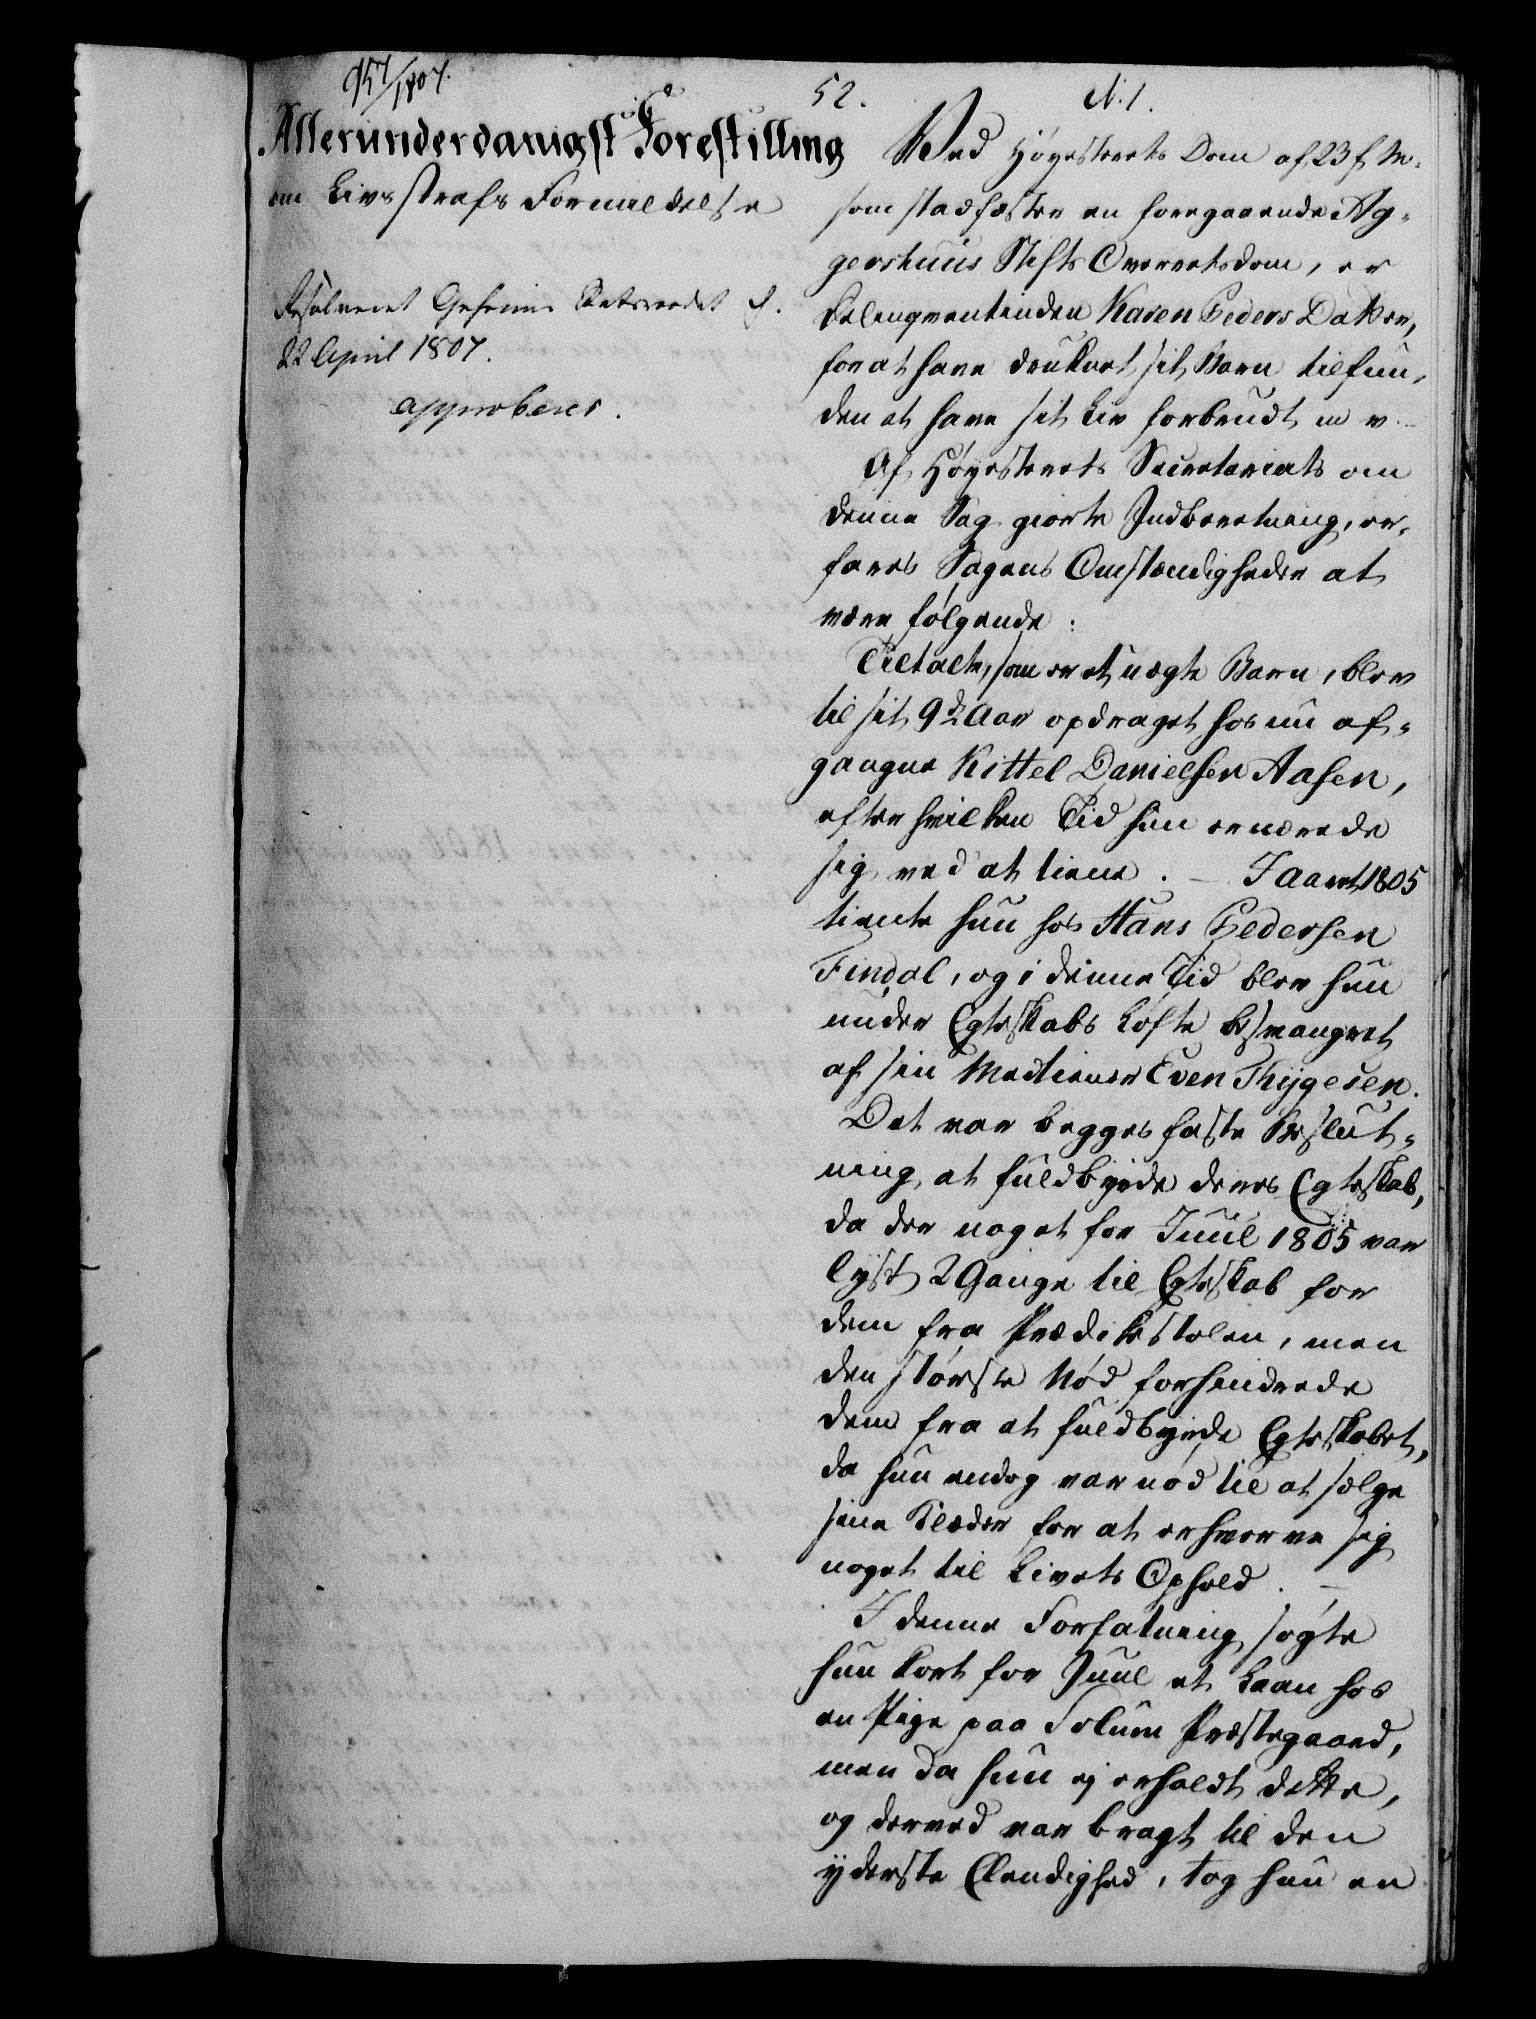 957/1807.
52.
N. 1.
Allerunderdanigst Forestilling
om Livsstrafs Formildelse
Resolveret Geheime Statsraadet d.
22 April 1807.
approberes.
Ved Høyesterets Dom af 23 f. M.
som stadfæster en foregaaende Ag-
gershuus Stifts Overretsdom, er
Delinqventinden Karen Peders Datter,
for at have druknet sit Barn tilfun-
den at have sit Liv forbrudt m v.
Af Høyesterets Secretariats om
denne Sag giorte Indberetning, er-
fares Sagens Omstændigheder at
være følgende:
Tiltalte, som er et uægte Barn, blev
til sit 9de Aar opdraget hos nu af-
gangne Kittel Danielsen Aasen,
efter hvilken Tid hun ernærede
sig ved at tiene. – I Aaret 1805
tiente hun hos Hans Pedersen
Findal, og i denne Tid blev hun
under Egteskabs Løfte besvangret
af sin Medtiener Even Thygesen.
Det var begges faste Beslut-
ning at fuldbyrde deres Egteskab,
da der noget for Juul 1805 var
lyst 2 Gange til Egteskab for
dem fra Prædikestolen, men
den største Nød forhindrede
dem fra at fuldbyrde Egteskabet,
da hun endog var nød til at sælge
sine Klæder for at erhverve sig
noget til Livets Ophold. –
I denne Forfatning søgte
hun kort for Juul et Laan hos
en Pige paa Solum Præstegaard,
men da hun ej erholdt dette,
og derved var bragt til den
yderste Elendighed, tog hun en